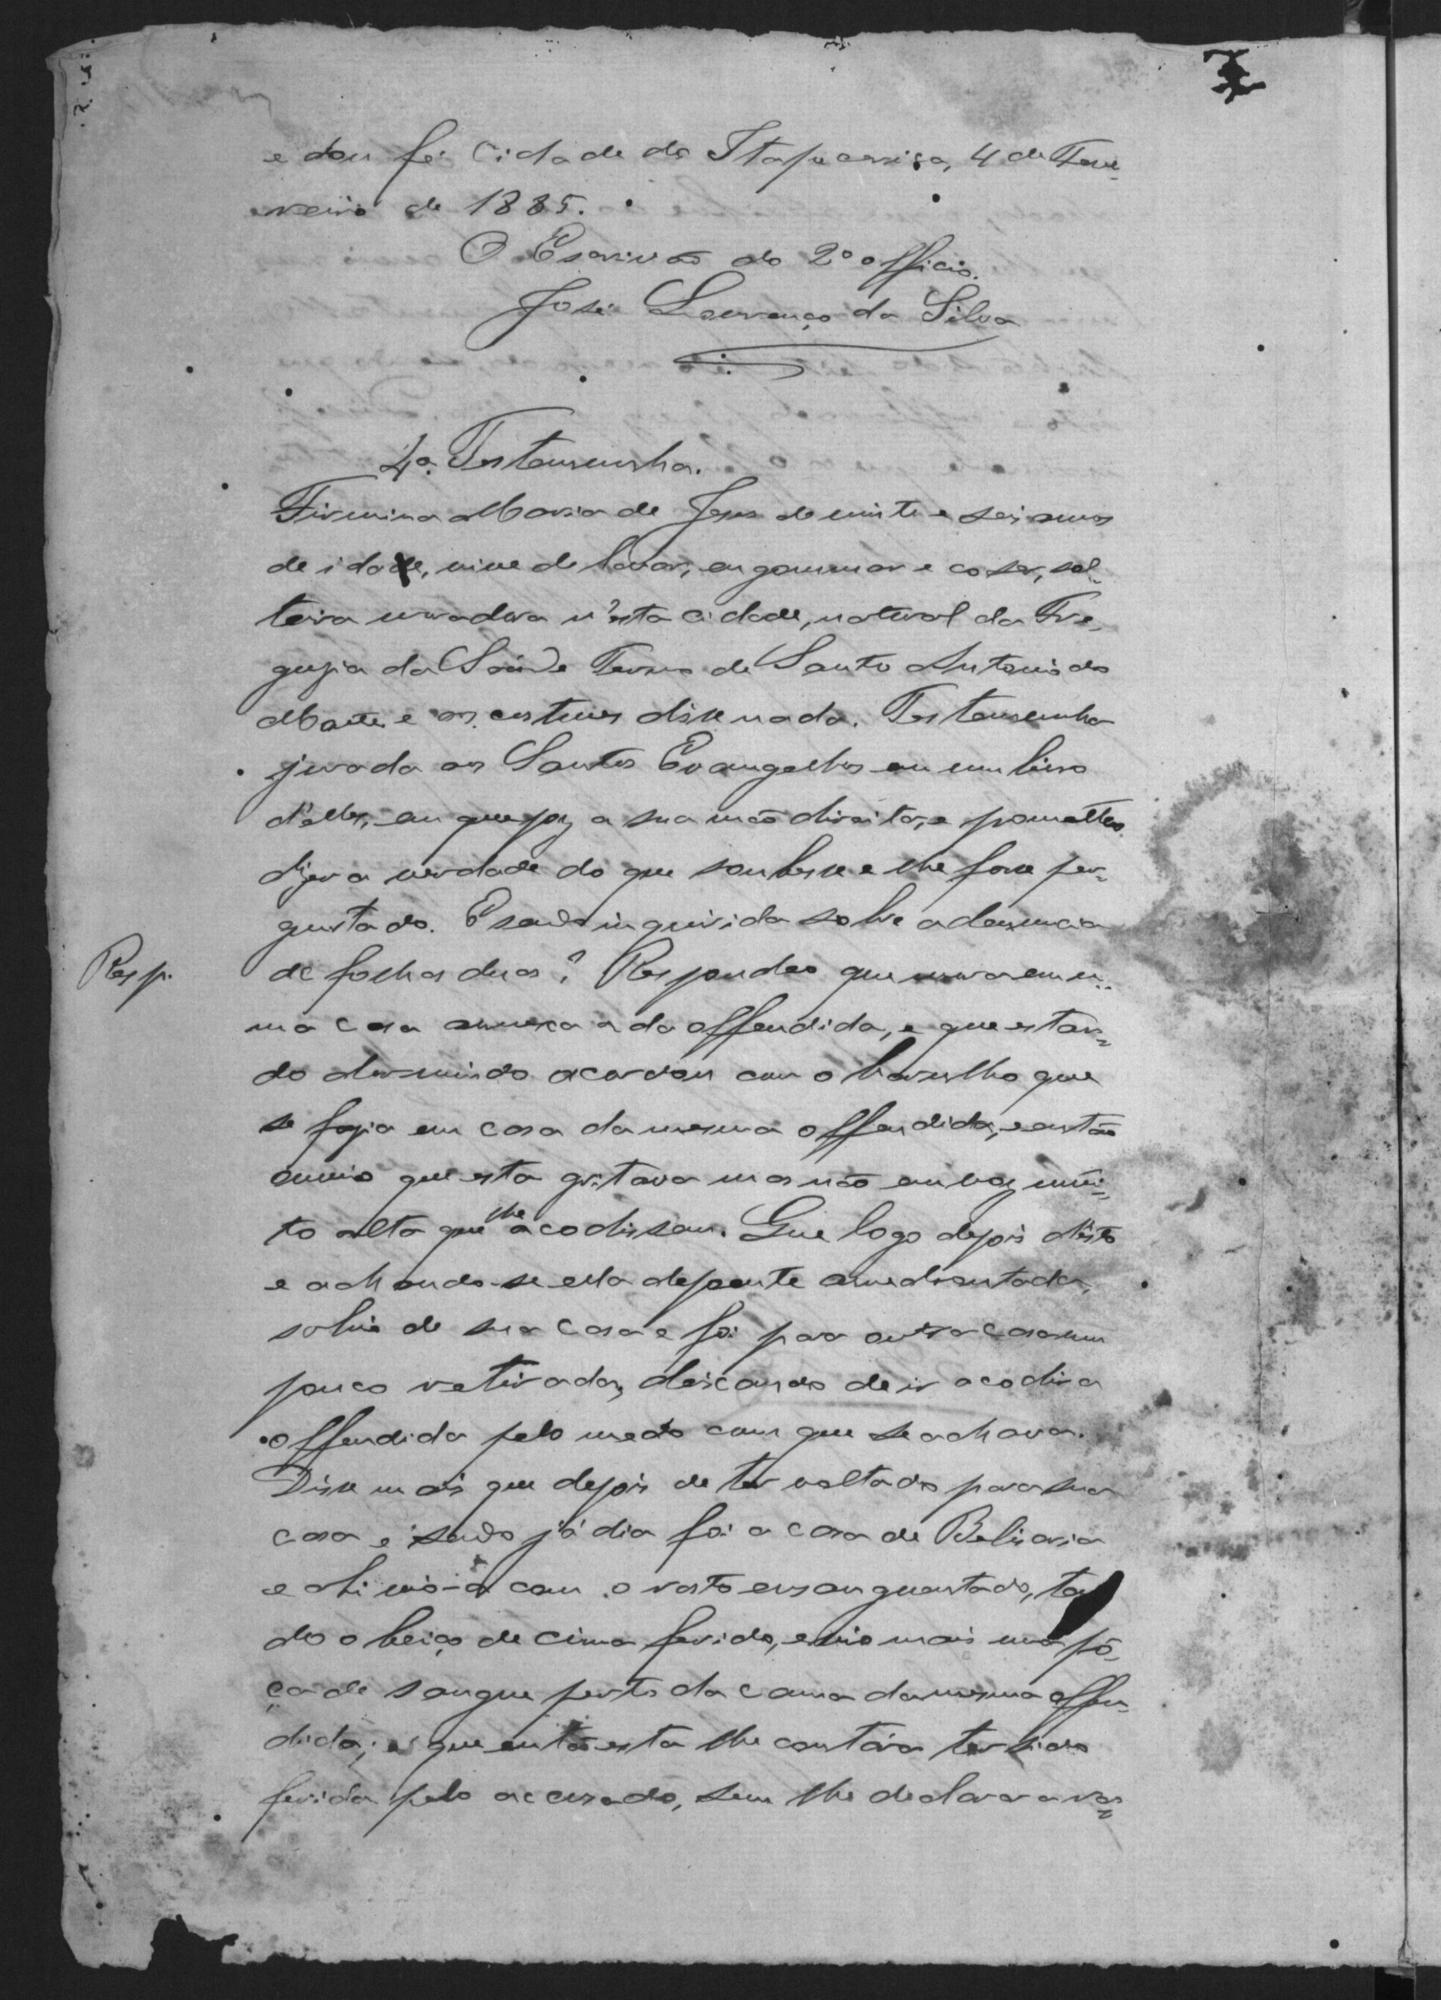 e dou fé. Cidade de Itapecerica, 4 de Feve-
ereiro de 1885.
O Escrivão do 2º officio.
José Lourenço da Silva
4ª Testemunha.
Firmina Maria de Jesus de vinte e seis annos
de idade, vive de lavar, engommar e coser, sol-
teira moradora n'esta cidade, natural da Fre-
guezia da Saúde Termo de Santo Antonio do
Monte e aos costumes disse nada. Testemunha
jurada aos Santos Evangelhos em um livro
d'elles, em que poz a sua mão direita, e prometteo
dizer a verdade do que soubesse e lhe fosse per-
guntado. E sendo inquirida sobre a denuncia
Resp. de folhas duas? Respondeo que mora em u-
ma casa annexa a da offendida, e que estan-
do dormindo acordou com o barulho que
se fazia em casa da mesma offendida, e então
ouvio que esta gritava mas não em voz mui-
to alta que lhe acodissem. Que logo depois d'isto
e achando-se ella depoente amedrontada,
sahio de sua casa e foi para outra casa um
pouco retirada, deixando de ir acodir a
offendida pelo medo com que se achava.
Disse mais que depois de ter voltado para sua
casa e sendo já dia foi a casa de Belisaria
e ahi vio-a com o rosto ensanguentado, ten
do o beiço de cima ferido, e vio mais uma pô-
ça de sangue perto da cama da mesma offen-
dida; e que então esta lhe contára ter sido
ferida pelo accusado, sem lhe declarar a ras-